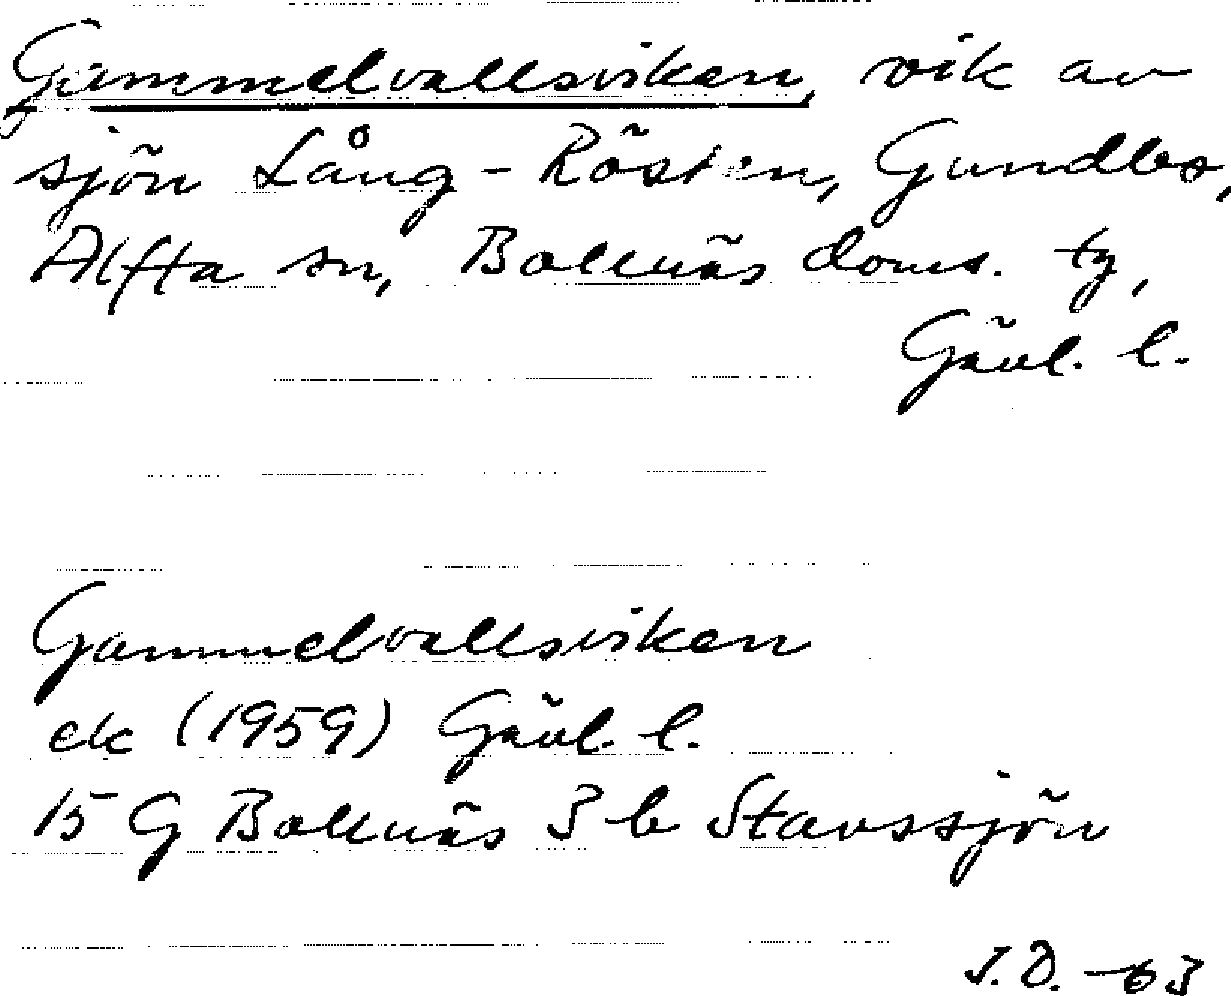 Gammelvallsviken, vik av
sjön Lång-Rösten, Gundbo,
Alfta sn, Bollnäs doms. tg,
Gävl. l.
Gammelvallsviken
ek (1959) Gävl. l.
15 G Bollnäs 3 b Stavssjön
J.D. -63